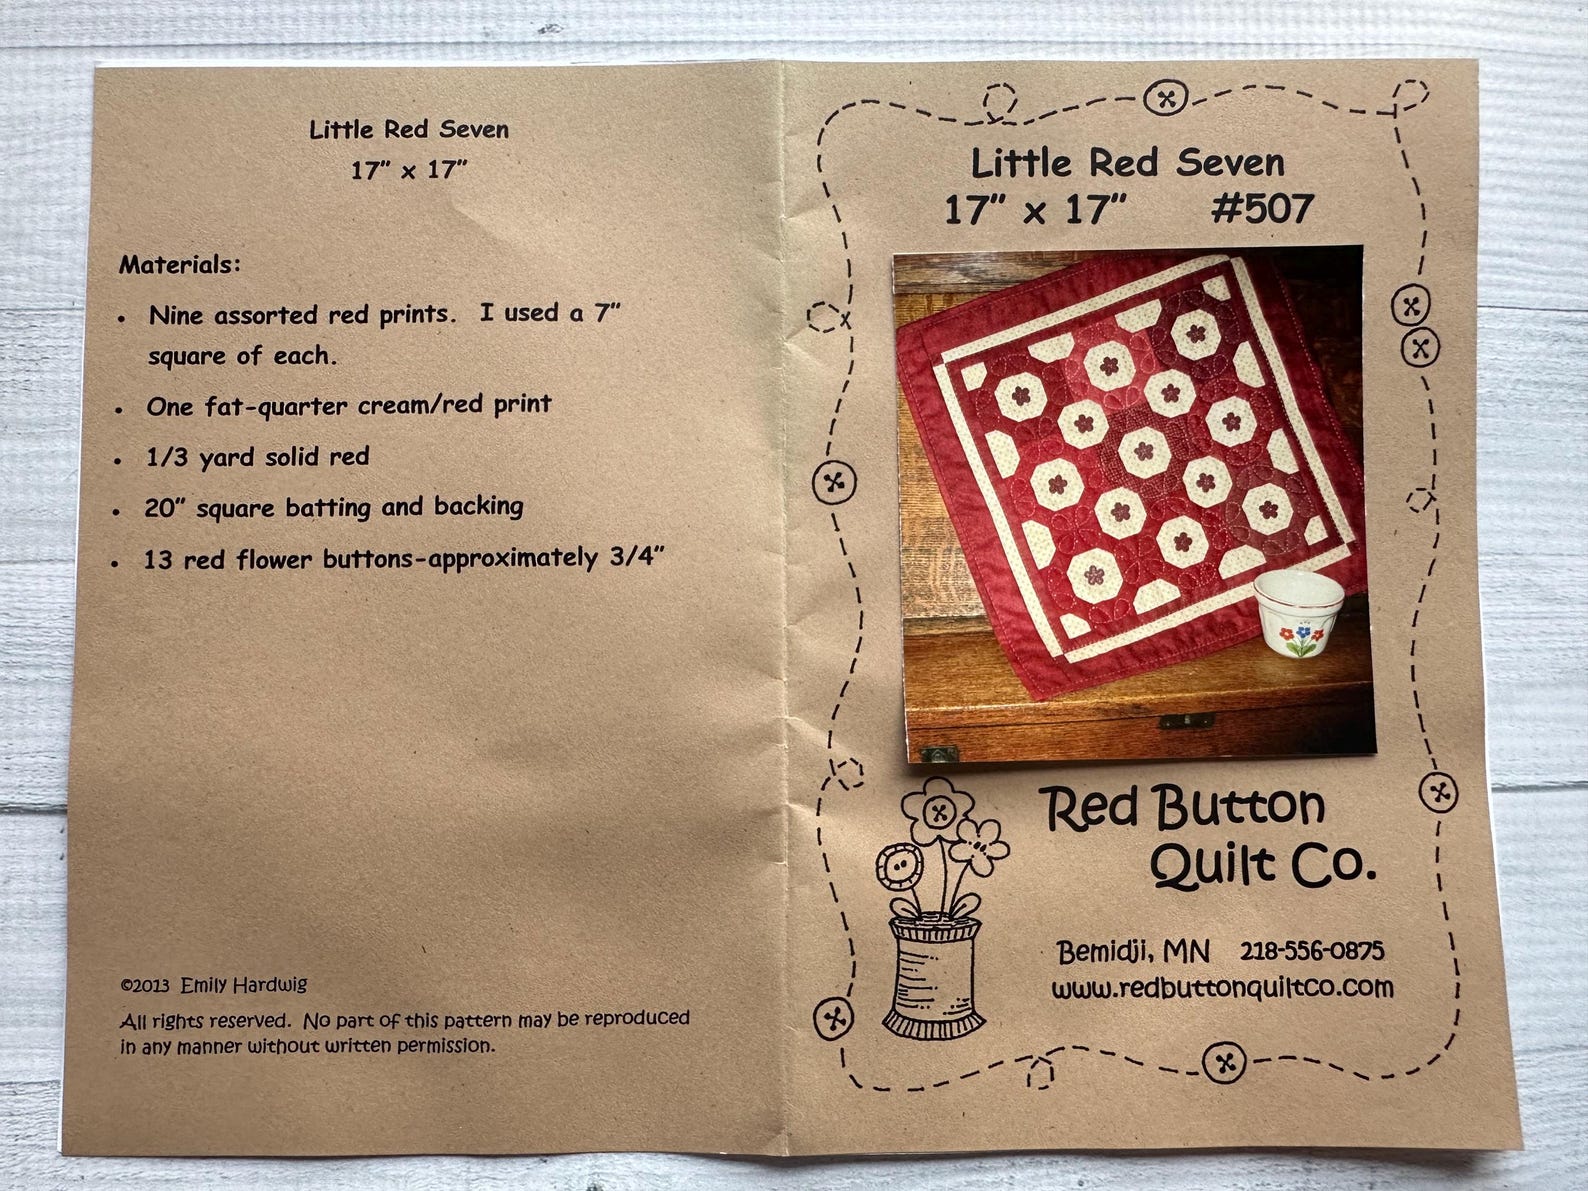 Little Red Seven
17" x 17"
Materials:
• Nine assorted red prints. I used a 7"
square of each.
• One fat-quarter cream/red print
• 1/3 yard solid red
• 20" square batting and backing
• 13 red flower buttons-approximately 3/4"
©2013 Emily Hardwig
All rights reserved. No part of this pattern may be reproduced
in any manner without written permission.
Little Red Seven
17" x 17" #507
Red Button
Quilt Co.
Bemidji, MN 218-556-0875
www.redbuttonquiltco.com